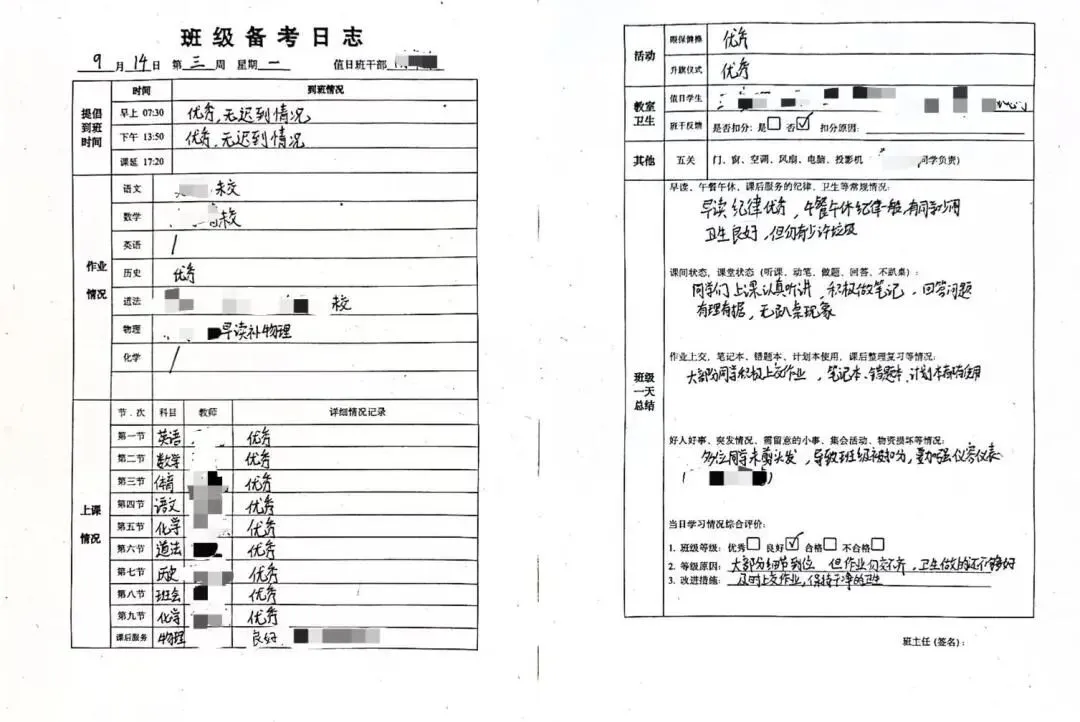 班级备考日志
9月14日 第三周 星期一 值日班干部
提倡到班时间 时间 到班情况
早上 07:30 优秀,无迟到情况。
下午 13:50 优秀,无迟到情况
课延 17:20
作业情况
语文 未交
数学 未交
英语 /
历史 优秀
道法 未交
物理 早读补物理
化学 /
上课情况
节.次 科目 教师 详细情况记录
第一节 英语 优秀
第二节 数学 优秀
第三节 体育 优秀
第四节 语文 优秀
第五节 化学 优秀
第六节 道法 优秀
第七节 历史 优秀
第八节 班会 优秀
第九节 化学 优秀
课后服务 物理 良好
活动
眼保健操 优秀
升旗仪式 优秀
教室卫生
值日学生
班干反馈 是否扣分:是□ 否☑ 扣分原因:
其他 五关 门、窗、空调、风扇、电脑、投影机 同学负责)
班级一天总结
早读、午餐午休、课后服务的纪律、卫生等常规情况:
早读纪律优秀,午餐午休纪律一般,有同学
卫生良好,但仍有少许垃圾
课间状态、课堂状态(听课、动笔、做题、回答、不趴桌):
同学们上课认真听讲,积极做笔记,回答问题
有理有据,无趴桌现象
作业上交,笔记本、错题本、计划本使用,课后整理复习等情况:
大部分同学积极上交作业,笔记本、错题本、计划本都有使用
好人好事、突发情况、需留意的小事、集会活动、物资损坏等情况:
多位同学未剪头发,导致班级被扣分,要加强仪容仪表
( )
当日学习情况综合评价:
1. 班级等级:优秀□ 良好☑ 合格□ 不合格□
2. 等级原因:大部分细节到位 但作业仍交不齐,卫生做的还不够好
3. 改进措施:及时上交作业,保持干净的卫生
班主任(签名):